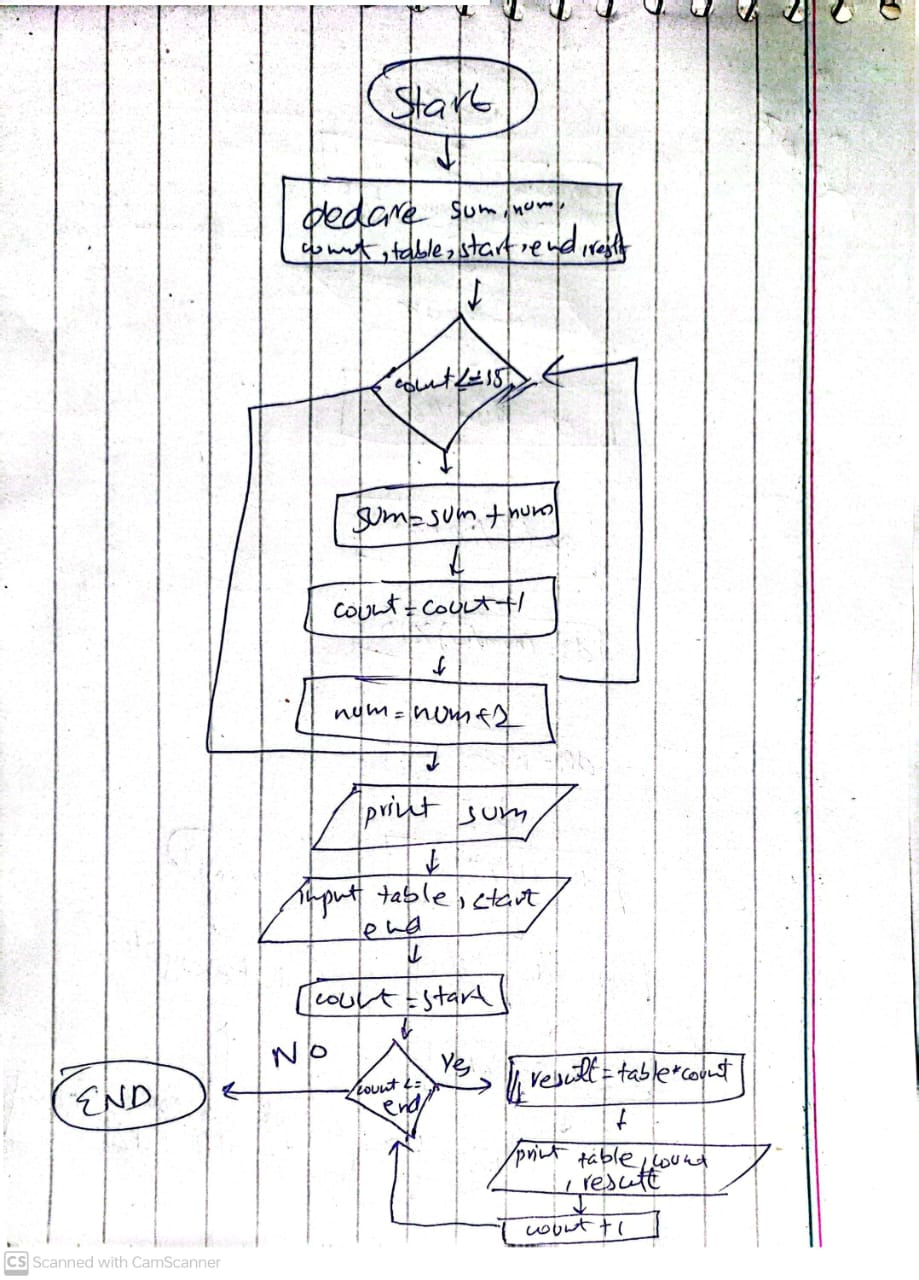 Start
declare sum, num,
count, table, start, end, result
count <= 15
sum = sum + num
count = count + 1
num = num + 2
print sum
input table, start
end
count = start
NO
Yes
END
count <=
end
result = table * count
print table, count
, result
count + 1
CS Scanned with CamScanner